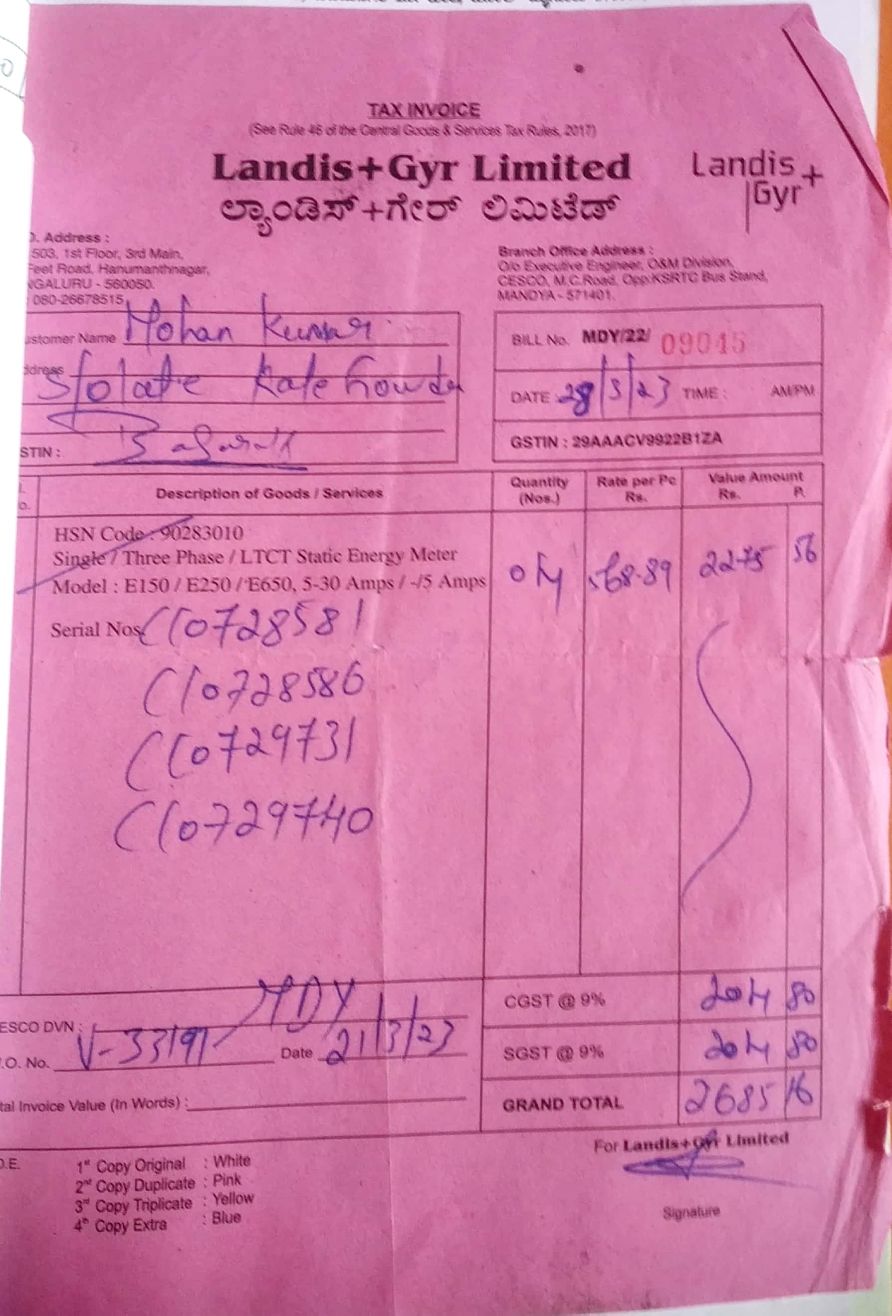 TAX INVOICE
(See Rule 46 of the Central Goods & Services Tax Rules, 2017)
Landis+Gyr Limited
ಲ್ಯಾಂಡಿಸ್+ಗೇರ್ ಲಿಮಿಟೆಡ್
Landis+
Gyr
. Address :
503, 1st Floor, 3rd Main,
Feet Road, Hanumanthnagar,
NGALURU - 560050.
080-26678515
Branch Office Address :
O/o Executive Engineer, O&M Division,
CESCO, M.C.Road, Opp:KSRTC Bus Stand,
MANDYA - 571401.
ustomer Name Mohan Kumar
ddress S/o late Kale Gowda
STIN :
BILL No. MDY/22/ 09045
DATE : 28/3/23 TIME : AM/PM
GSTIN : 29AAACV9922B1ZA
Description of Goods / Services
Quantity (Nos.)
Rate per Pc Rs.
Value Amount Rs. P.
HSN Code : 90283010
Single / Three Phase / LTCT Static Energy Meter
Model : E150 / E250 / E650, 5-30 Amps / -/5 Amps
04 568-89 2275 56
Serial Nos
0728581
0728586
0729731
0729740
CGST @ 9% 204 80
SGST @ 9% 204 80
GRAND TOTAL 2685 16
ESCO DVN : MDY
.O. No. V-33197 Date 21/3/23
tal Invoice Value (In Words) :
For Landis+Gyr Limited
Signature
O.E.
1st Copy Original : White
2nd Copy Duplicate : Pink
3rd Copy Triplicate : Yellow
4th Copy Extra : Blue